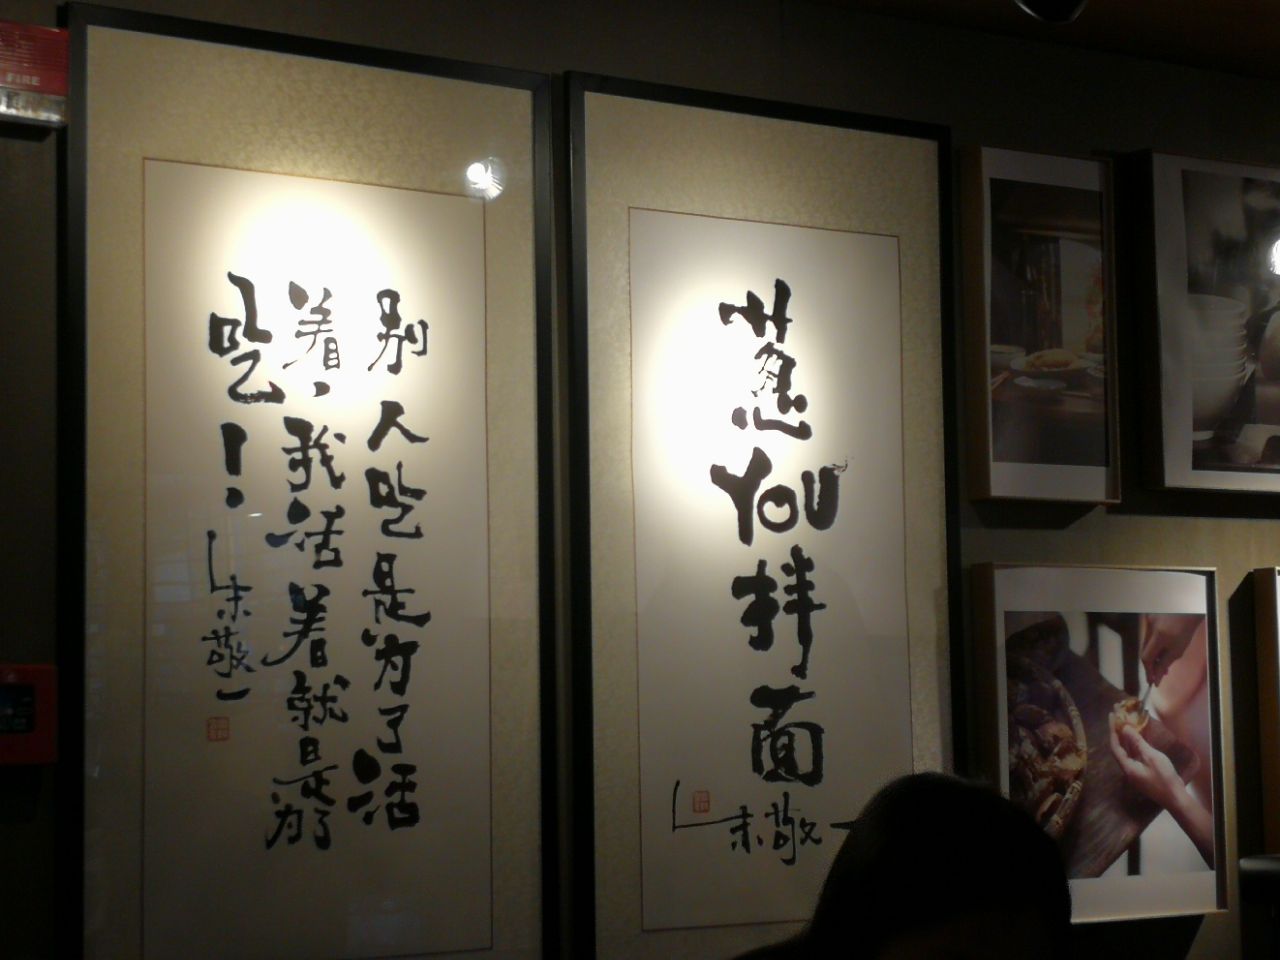 FIRE
别人吃是为了活
着，我活着就是为了
吃！
朱敬一
蔥YOU拌面
朱敬一